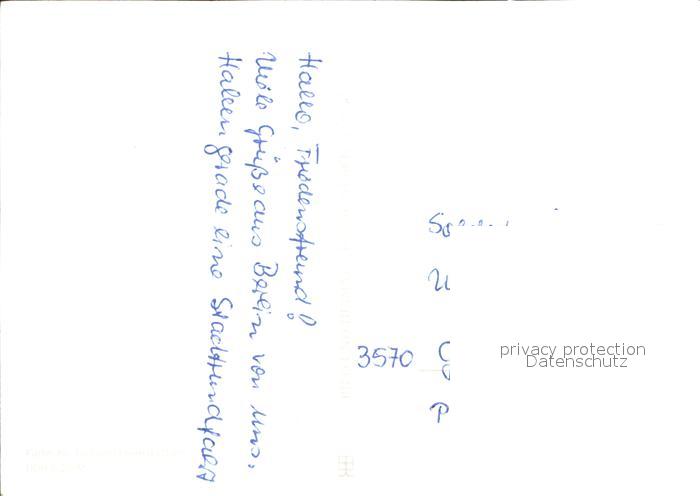 Hallo, Friedensfreund!
Viele Grüße aus Berlin von uns.
Haben gerade eine Stadtrundfahrt
3570
privacy protection
Datenschutz